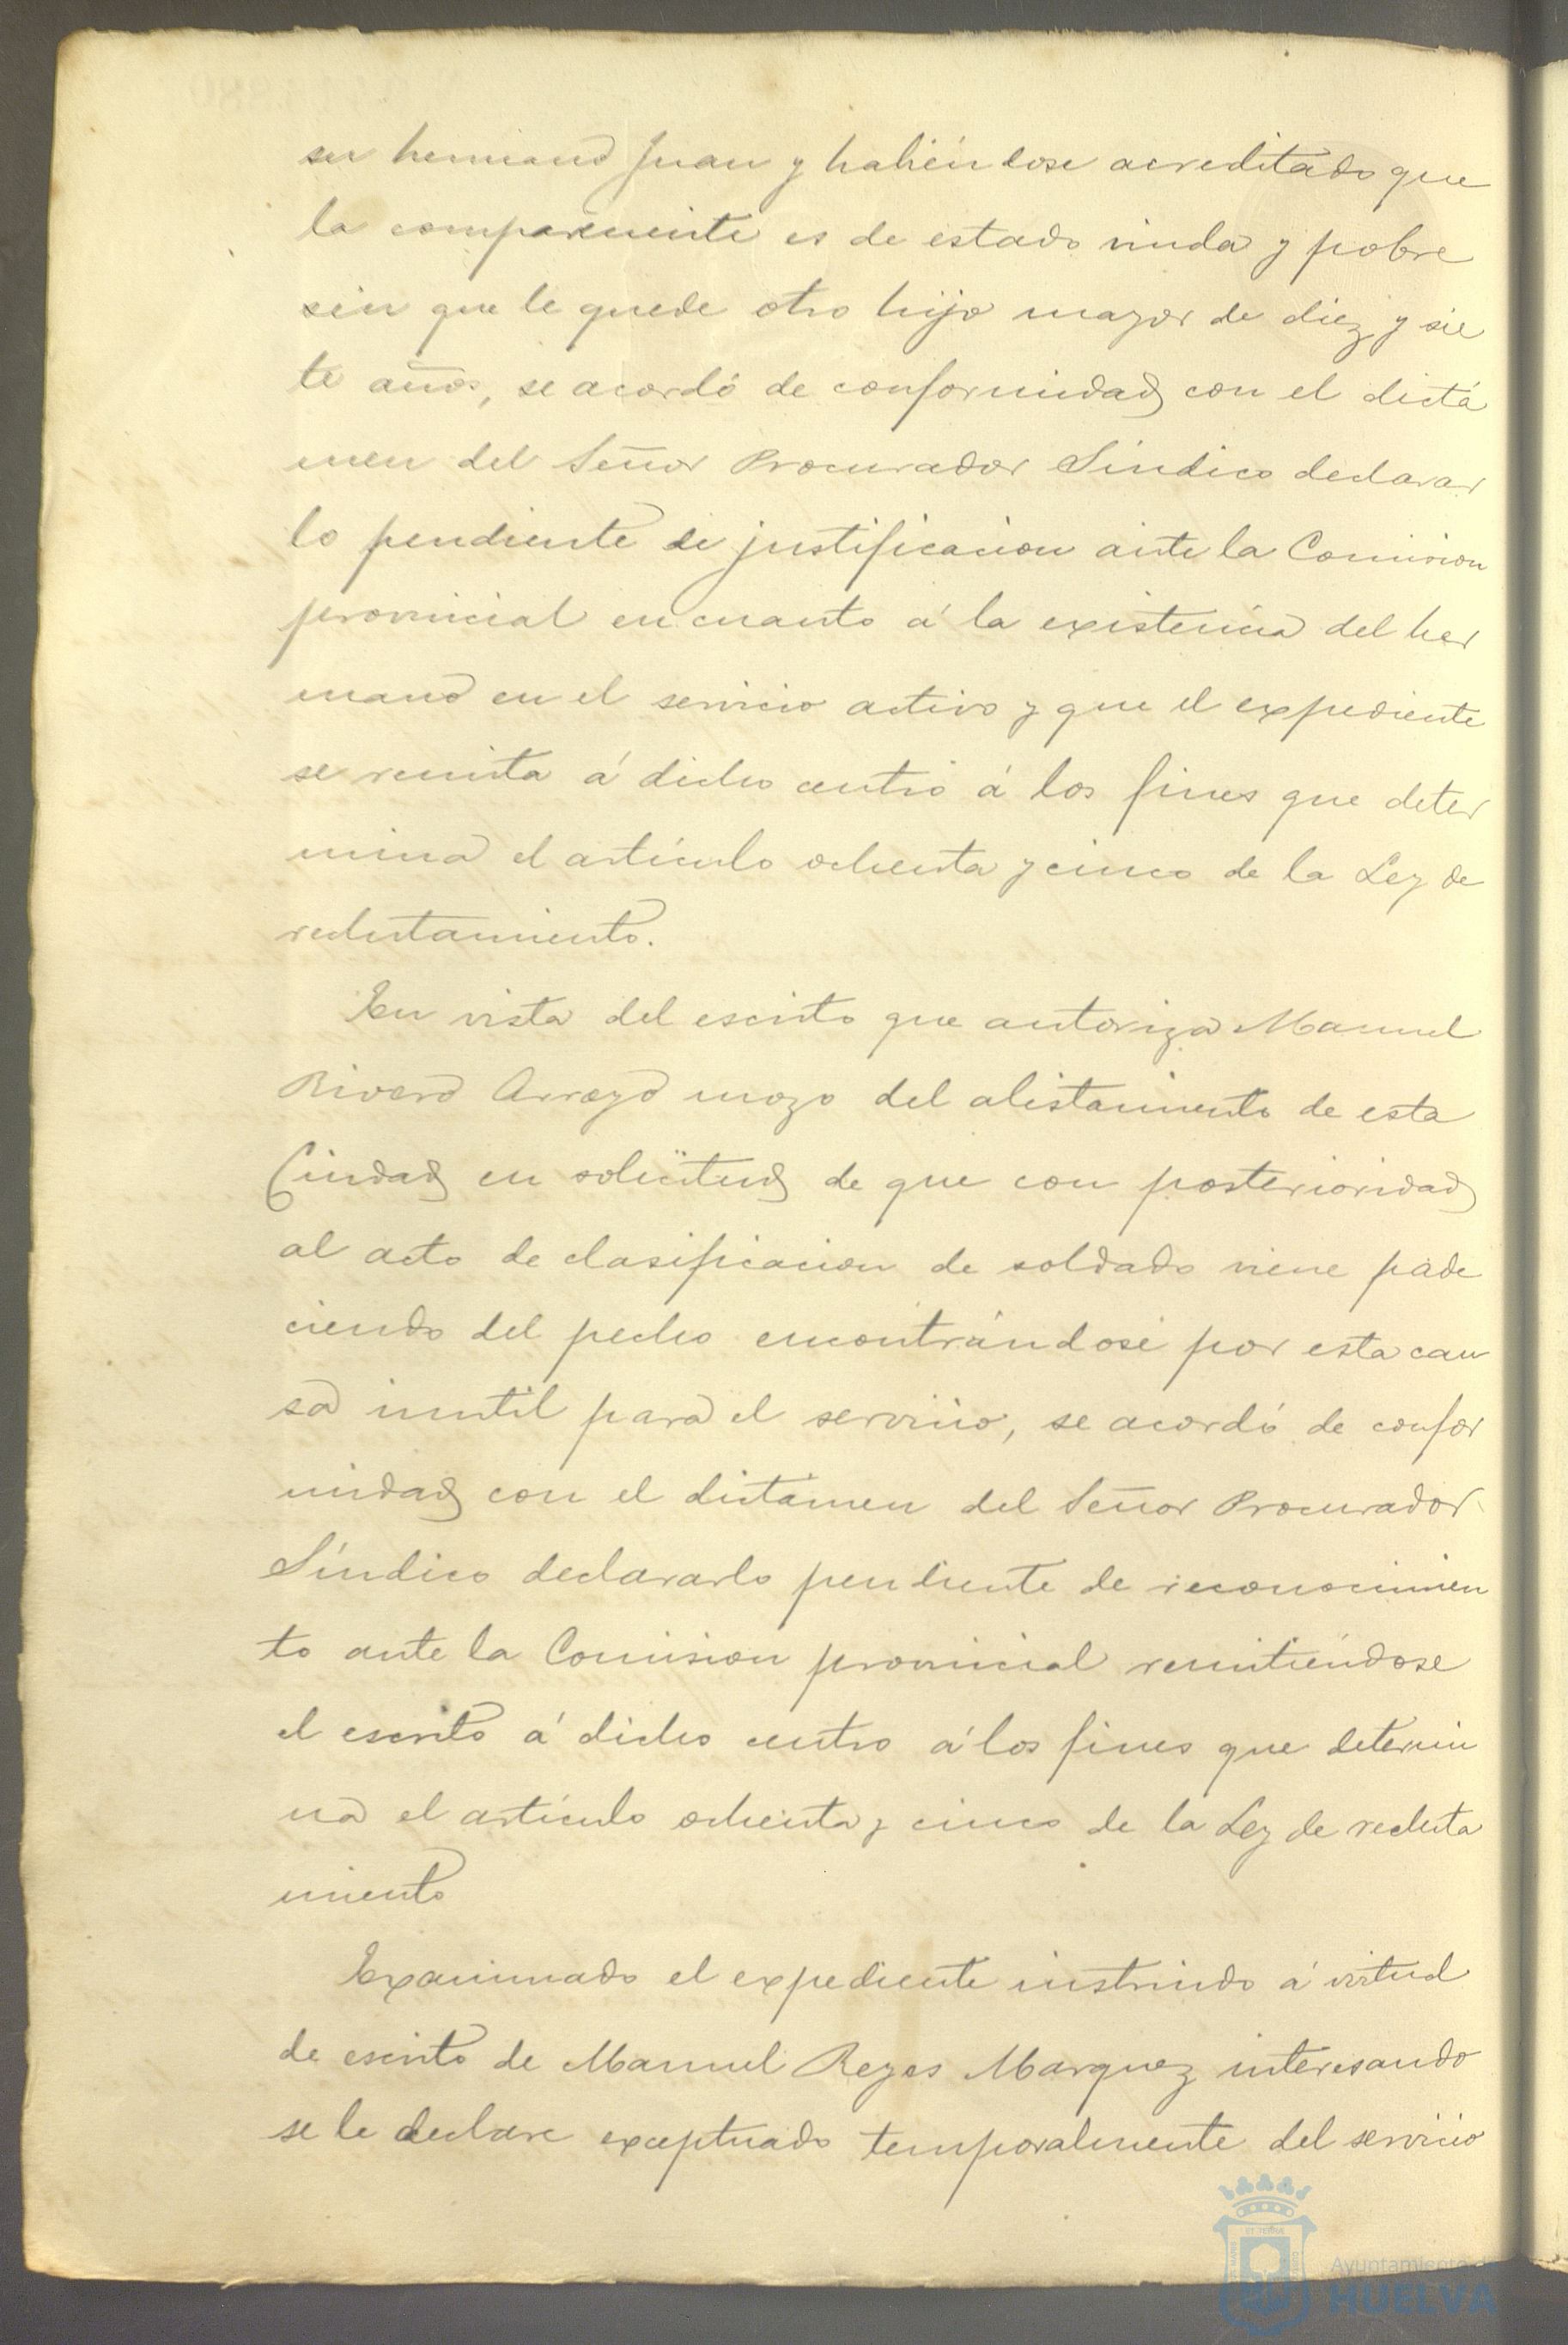 su hermano Juan y habiéndose acreditado que
la compareciente es de estado viuda y pobre
sin que le quede otro hijo mayor de diez y sie
te años, se acordó de conformidad con el dictá
men del Señor Procurador Síndico declarar
lo pendiente de justificacion ante la Comision
provincial en cuanto á la existencia del her
mano en el servicio activo y que el expediente
se remita á dicho centro á los fines que deter
mina el artículo ochenta y cinco de la Ley de
reclutamiento.
En vista del escrito que autoriza Manuel
Rivero Arroyo mozo del alistamiento de esta
Ciudad en solicitud de que con posterioridad
al acto de clasificacion de soldado viene pade
ciendo del pecho encontrándose por esta cau
sa inutil para el servicio, se acordó de confor
midad con el dictámen del Señor Procurador
Síndico declararlo pendiente de reconocimien
to ante la Comision provincial remitiéndose
el escrito á dicho centro á los fines que determi
na el artículo ochenta y cinco de la Ley de recluta
miento
Examinado el expediente instruido á virtud
de escrito de Manuel Reyes Marquez interesando
se le declare exceptuado temporalmente del servicio
Ayuntamiento de
HUELVA